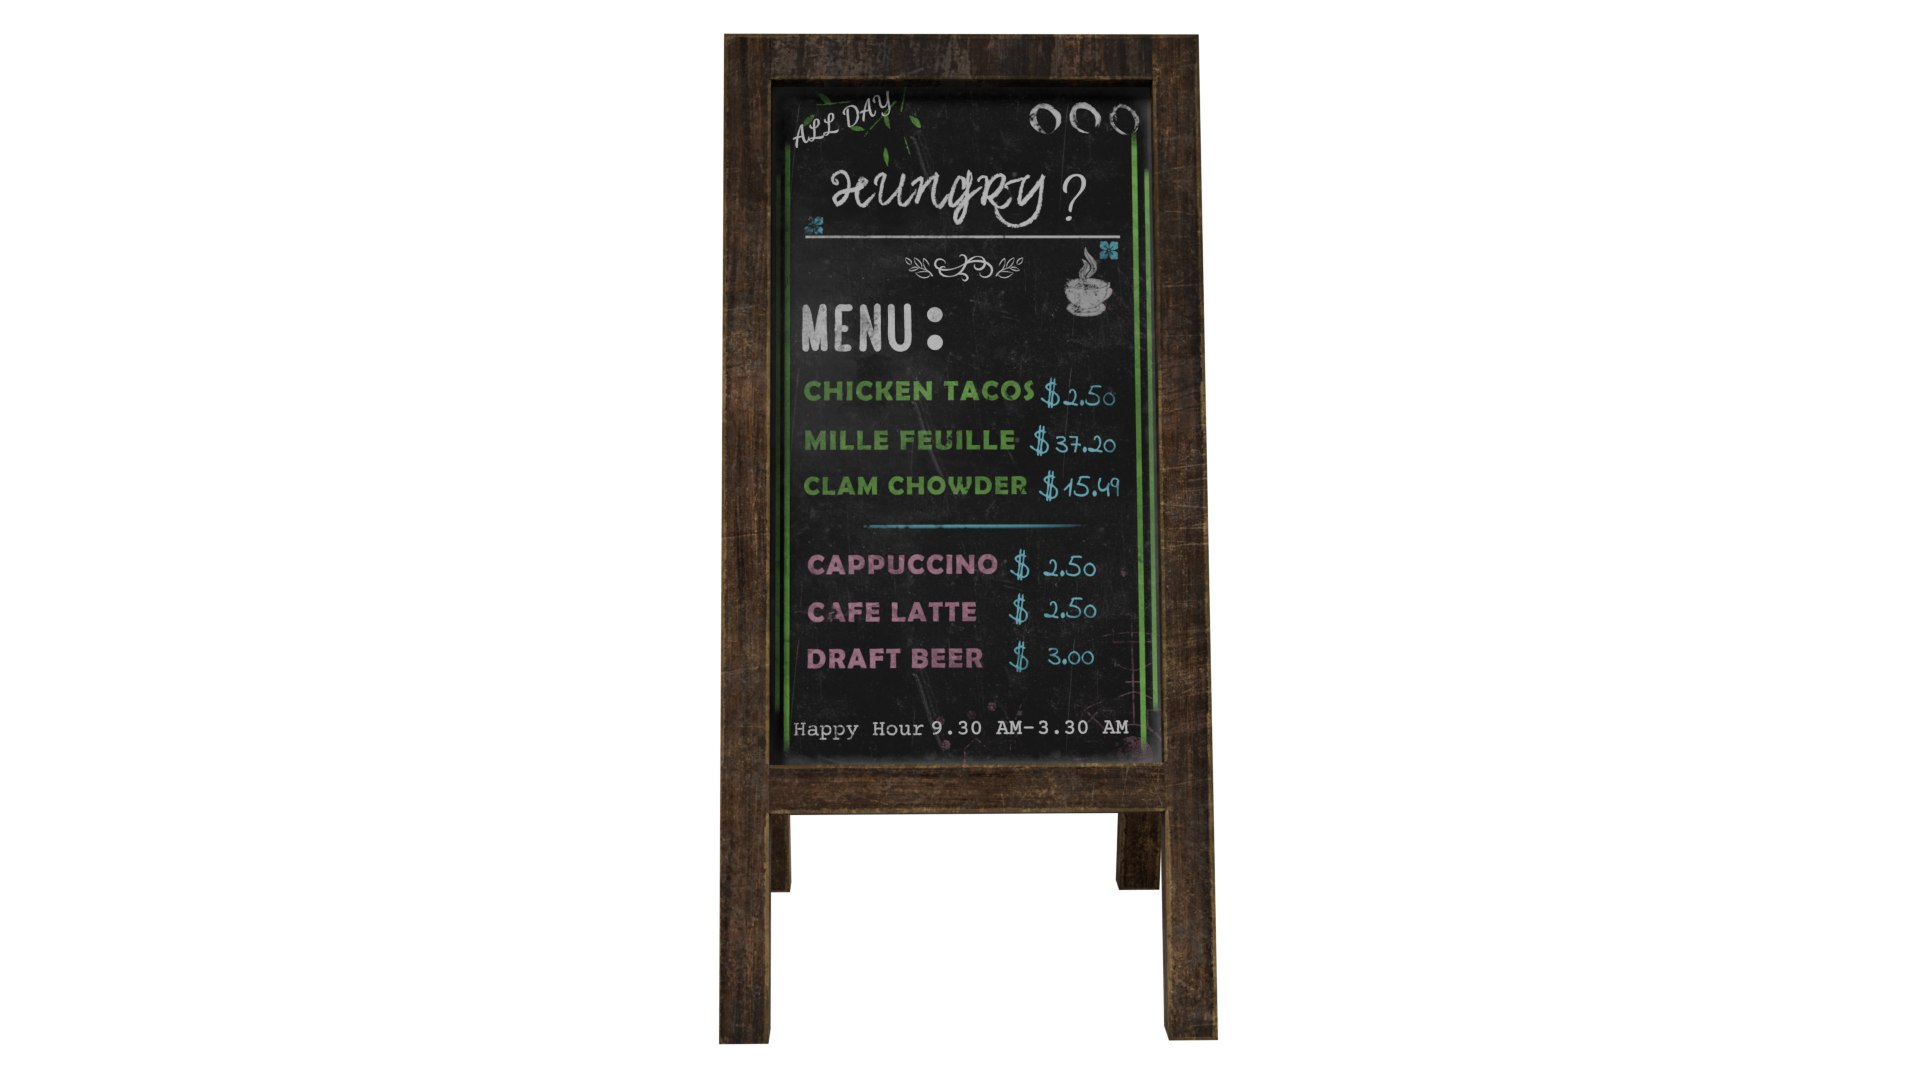 ALL DAY
HUNGRY?
MENU:
CHICKEN TACOS $2.50
MILLE FEUILLE $37.20
CLAM CHOWDER $15.49
CAPPUCCINO $ 2.50
CAFE LATTE $ 2.50
DRAFT BEER $ 3.00
Happy Hour 9.30 AM-3.30 AM